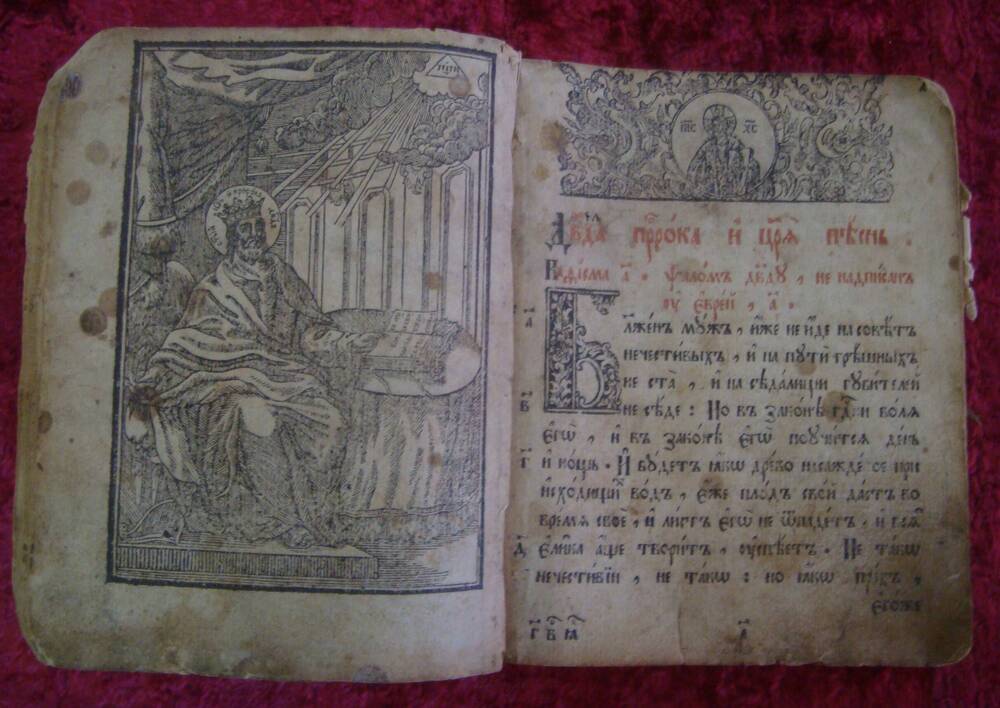 І҃ИС Х҃С
Дв҃да прⷪ҇рока и҆ цр҃ѧ̀ пѣ́снь .
Каѳі́сма а҃ . Ѱало́мъ дв҃дꙋ , не надпи́санъ
оу҆ є҆вре́й , а҃ .
а҃
Бл҃же́нъ мꙋ́жъ , и҆́же не и҆́де на совѣ́тъ
нечести́выхъ , и҆ на пꙋтѝ грѣ́шныхъ
не ста̀ , и҆ на сѣда́лищи гꙋби́телей
в҃
не сѣ́де : Но въ зако́нѣ гдⷭ҇ни во́лѧ
є҆гѡ̀ , и҆ въ зако́нѣ є҆гѡ̀ поꙋчи́тсѧ де́нь
г҃
и҆ но́щь . И҆ бꙋ́детъ ꙗ҆́кѡ дре́во насажде́ное при
и҆схо́дищи во́дъ , є҆́же пло́дъ сво́й да́стъ во
вре́мѧ своѐ , и҆ ли́стъ є҆гѡ̀ не ѿпаде́тъ , и҆ всѧ̑
є҆ли̑ка а҆́ще твори́тъ , оу҆спѣ́етъ . Не та́кѡ
д҃
нечести́вїи , не та́кѡ : но ꙗ҆́кѡ пра́хъ ,
є҆го́же